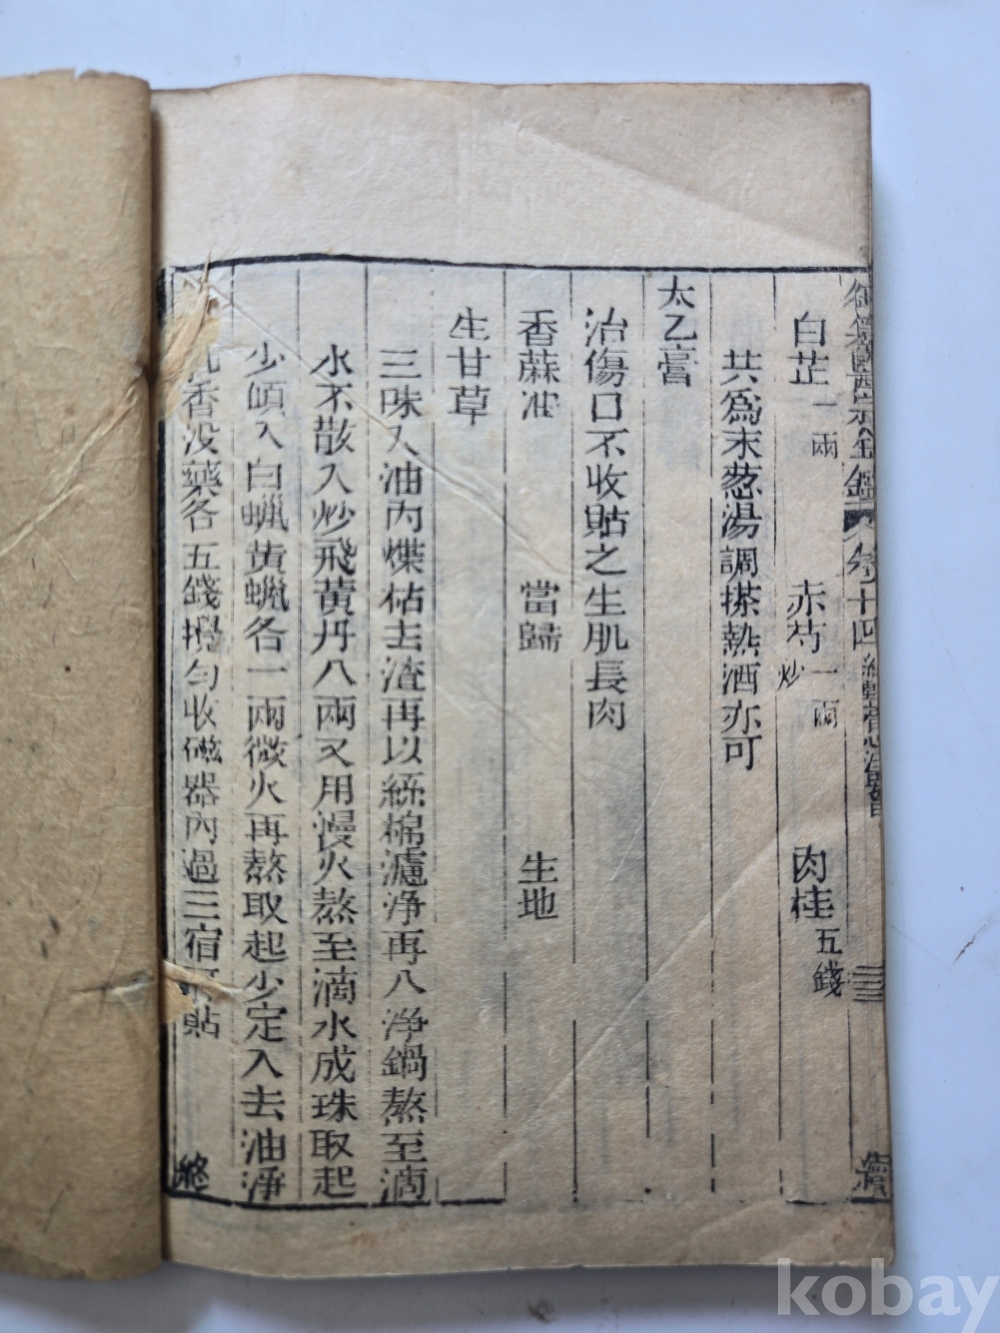 白芷一兩 赤芍一兩炒 肉桂五錢
共爲末葱湯調搽熱酒亦可
太乙膏
治傷口不收貼之生肌長肉
香蔴油 當歸 生地
生甘草
三味入油内煠枯去渣再以絲棉濾淨再入淨鍋熬至滴
水不散入炒飛黄丹八兩又用慢火熬至滴水成珠取起
少頃入白蠟黄蠟各一兩微火再熬取起少定入去油淨
香没藥各五錢攪勻收磁器内過三宿 貼
kobay